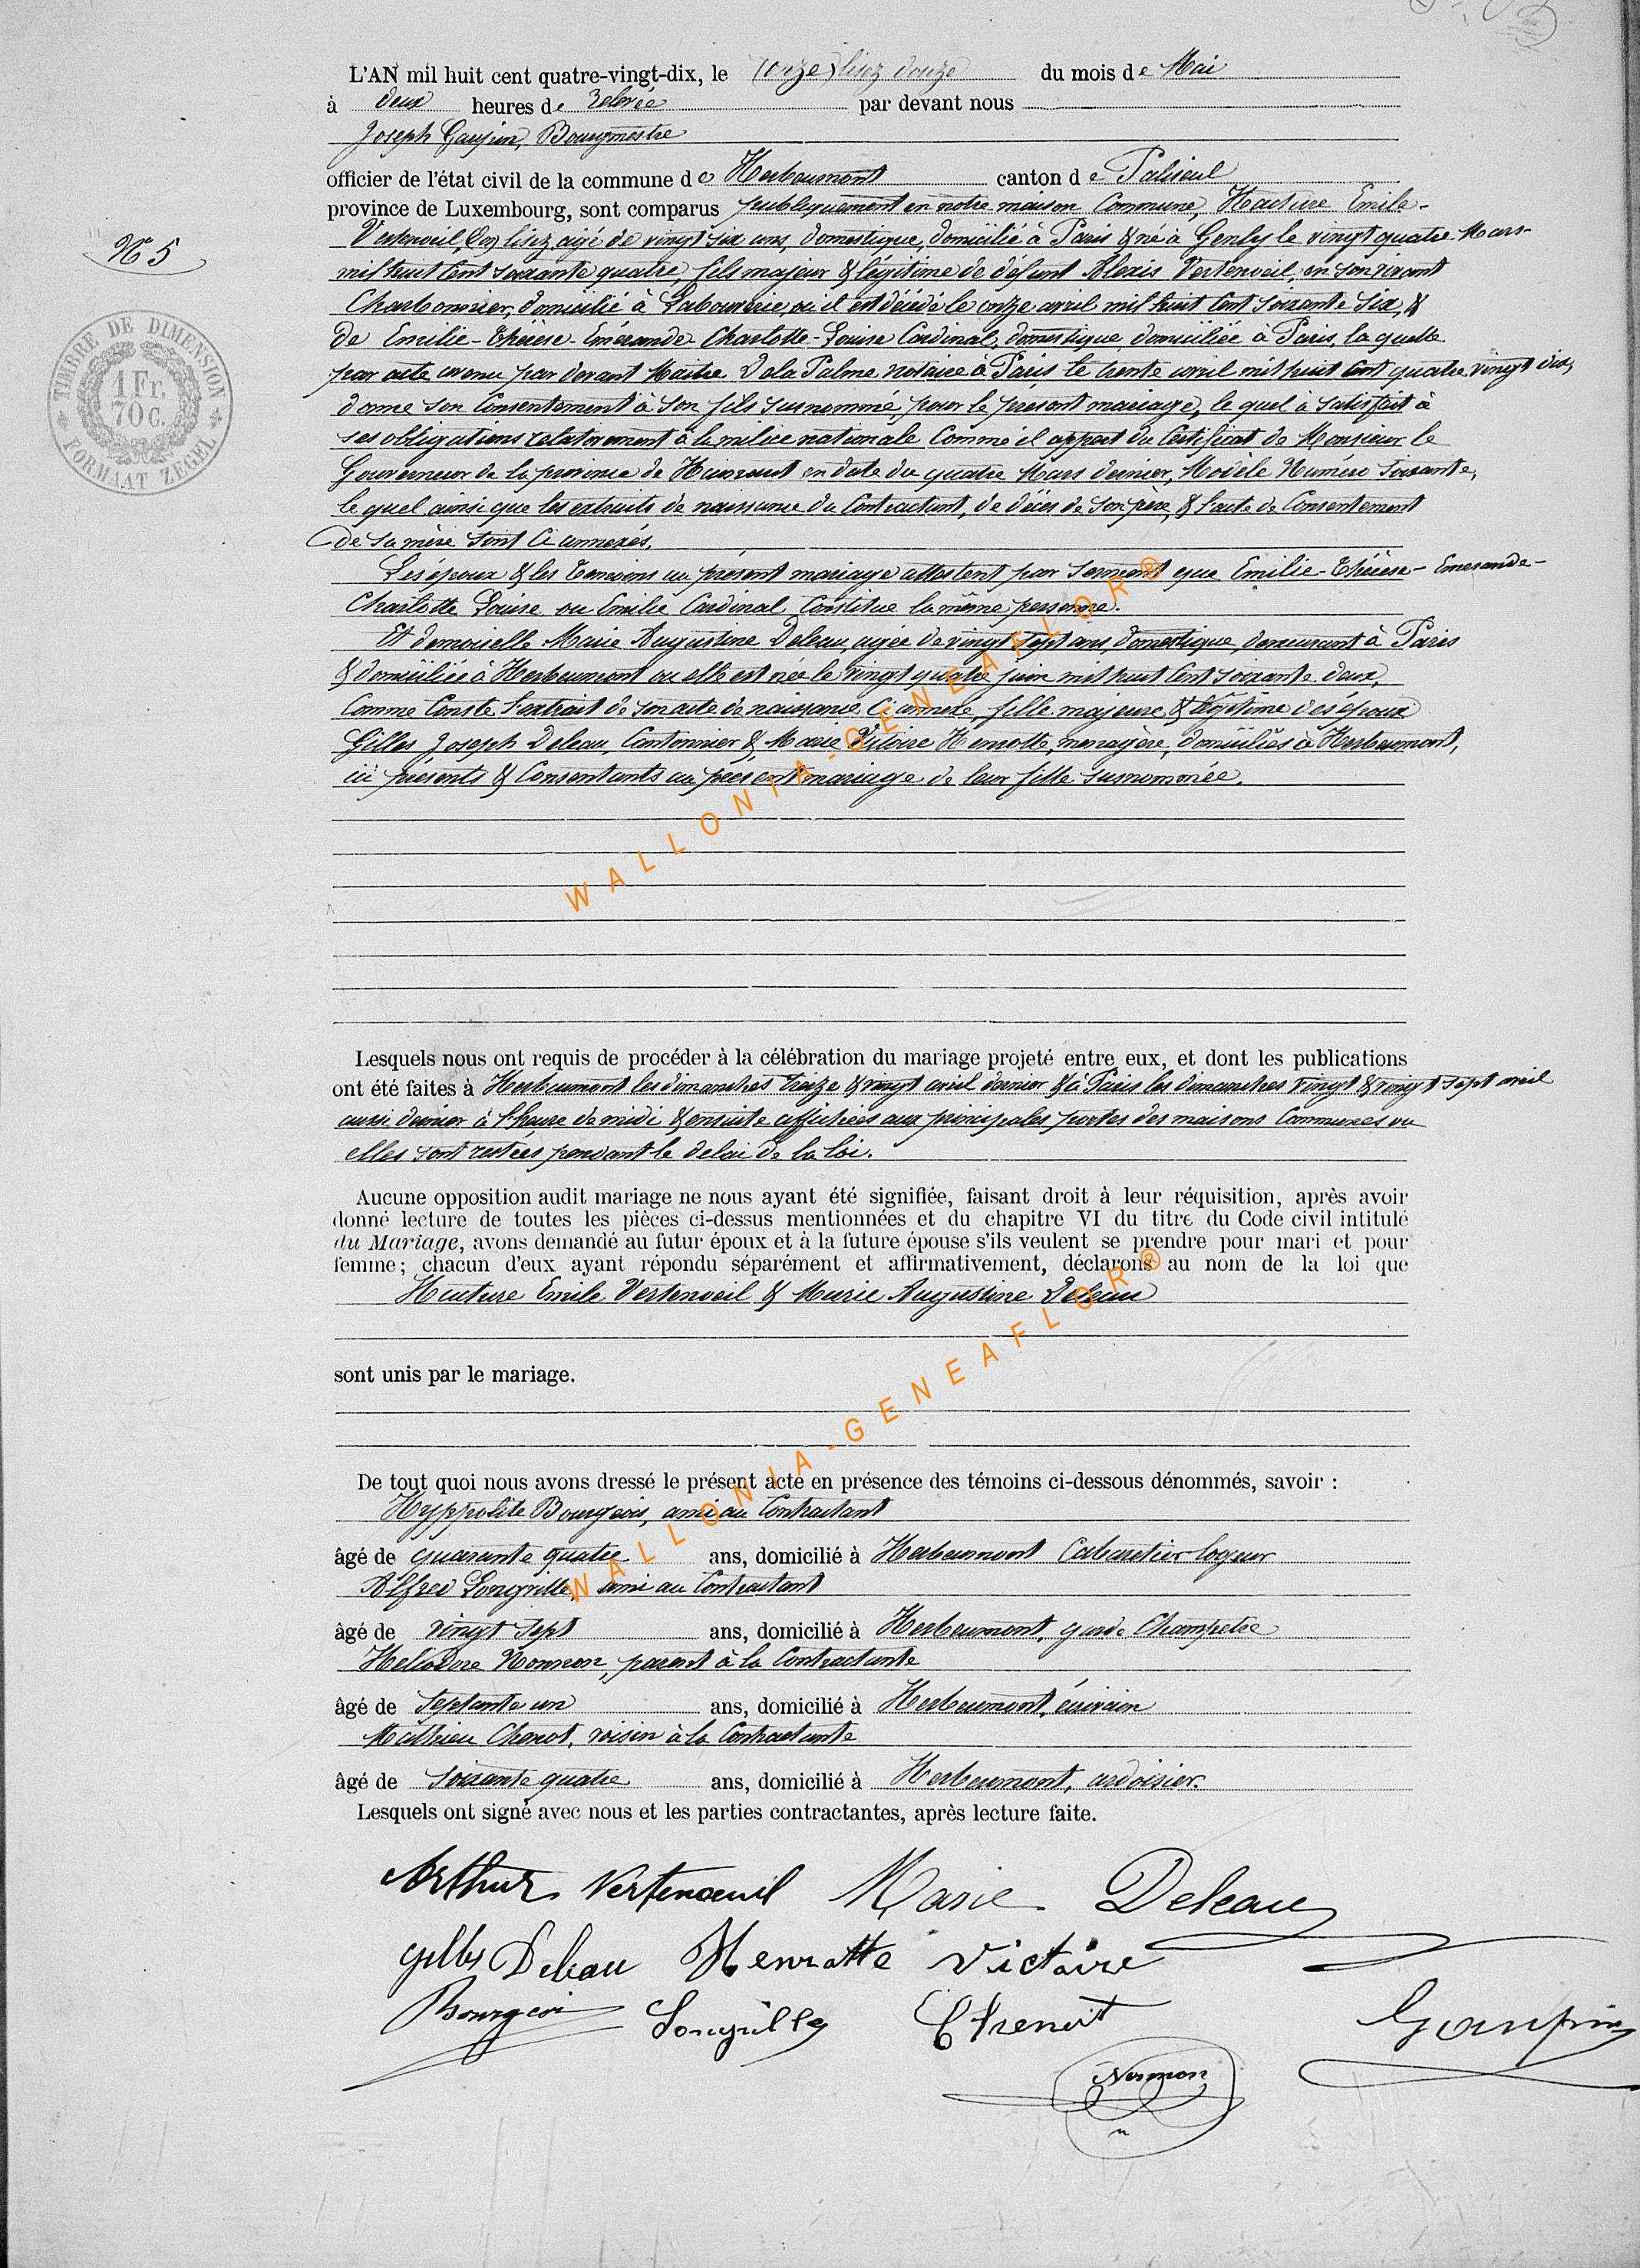 L'AN mil huit cent quatre-vingt-dix, le (onze) lisez douze du mois de Mai
à deux heures de relevée par devant nous
Joseph Gaupin, Bourgmestre
officier de l'état civil de la commune de Herbeumont canton de Paliseul
province de Luxembourg, sont comparus publiquement en notre maison Commune, Emile
N° 5
Vertenoeil, lisez, agé de vingt six ans, domestique, domicilié à Paris & né à Genly le vingt quatre Mars
mil huit Cent soixante quatre, fils majeur & légitime de défunt Alexis Vertenoeil, en son vivant
Charbonnier, domicilié à où il est décédé le onze avril mil huit Cent soixante six, &
de Emilie-Thérèse-Emérande-Charlotte-Louise Cardinal, domestique domiciliée à Paris, la quelle
par acte avenu par devant Maitre Dela Palme notaire à Paris le trente avril mil huit Cent quatre vingt dix,
donne son Consentement à son fils susnommé, pour le présent mariage, le quel à satisfait à
ses obligations relativement à la milice nationale Comme il appert du Certificat de Monsieur le
Gouverneur de la province de Hainaut en date du quatre Mars dernier, Modèle Numéro soixante,
le quel ainsi que les extraits de naissance du Contractant, de décès de son père, & l'acte de Consentement
de sa mère sont Ci annexés.
Les époux & les témoins au présent mariage attestent par serment que Emilie-Thérèse-Emerande-
Charlotte Louise ou Emilie Cardinal Constitue la même personne.
Et demoiselle Marie Augustine Deleau, agée de vingt sept ans, domestique, demeurant à Paris
& domiciliée à Herbeumont ou elle est née le vingt quatre juin mil huit Cent soixante deux,
Comme Conste l'extrait de son acte de naissance Ci annexé, fille majeure & légitime des époux
Gilles Joseph Deleau, Cantonnier & Marie Victoire Henrotte, menagère, domiciliés à Herbeumont,
ici présents & Consentants au présent mariage de leur fille susnommée.
Lesquels nous ont requis de procéder à la célébration du mariage projeté entre eux, et dont les publications
ont été faites à Herbeumont les dimanches treize & vingt avril dernier & à Paris les dimanches vingt & vingt sept avril
aussi dernier à l'heure de midi & ensuite affichées aux principales portes des maisons Communes ou
elles sont restées pendant le delai de la loi.
Aucune opposition audit mariage ne nous ayant été signifiée, faisant droit à leur réquisition, après avoir
donné lecture de toutes les pièces ci-dessus mentionnées et du chapitre VI du titre du Code civil intitulé
du Mariage, avons demandé au futur époux et à la future épouse s'ils veulent se prendre pour mari et pour
femme; chacun d'eux ayant répondu séparément et affirmativement, déclarons au nom de la loi que
Emile Vertenoeil & Marie Augustine Deleau
sont unis par le mariage.
De tout quoi nous avons dressé le présent acte en présence des témoins ci-dessous dénommés, savoir :
Hyppolite Bourgeois, ami au Contractant
âgé de quarante quatre ans, domicilié à Herbeumont Cabaretier logeur
Alfred Longville, ami au Contractant
âgé de vingt sept ans, domicilié à Herbeumont, garde Champetre
Heliodore Nonnon, parent à la Contractante
âgé de septante un ans, domicilié à Herbeumont, écrivain
Mathieu Chenot, voisin à la Contractante
âgé de soixante quatre ans, domicilié à Herbeumont, ardoisier.
Lesquels ont signé avec nous et les parties contractantes, après lecture faite.
Arthur Vertenoeuil Marie Deleau
Gilles Deleau Henrotte Victoire
Bourgeois Longville Chenot Gaupin
Nonnon
TIMBRE DE DIMENSION
1 Fr.
70 C.
FORMAAT ZEGEL
WALLONIA-GENEAFLOR®
WALLONIA-GENEAFLOR®